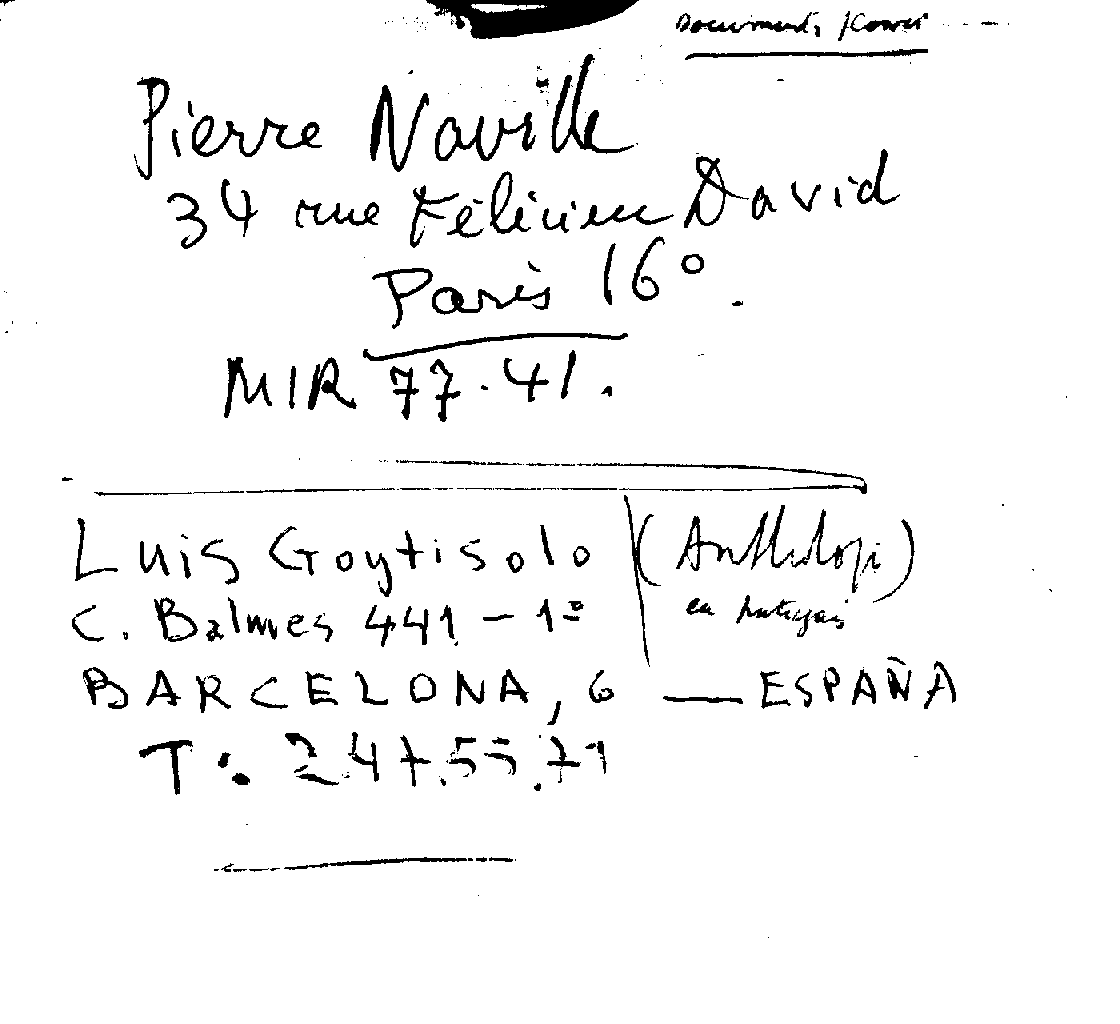 Documents /
Pierre Naville
34 rue Félicien David
Paris 16°.
MIR 77.41.
Luis Goytisolo (Anthologi)
C. Balmes 441 - 1º
en
BARCELONA, 6 — ESPAÑA
T: 247.55.71